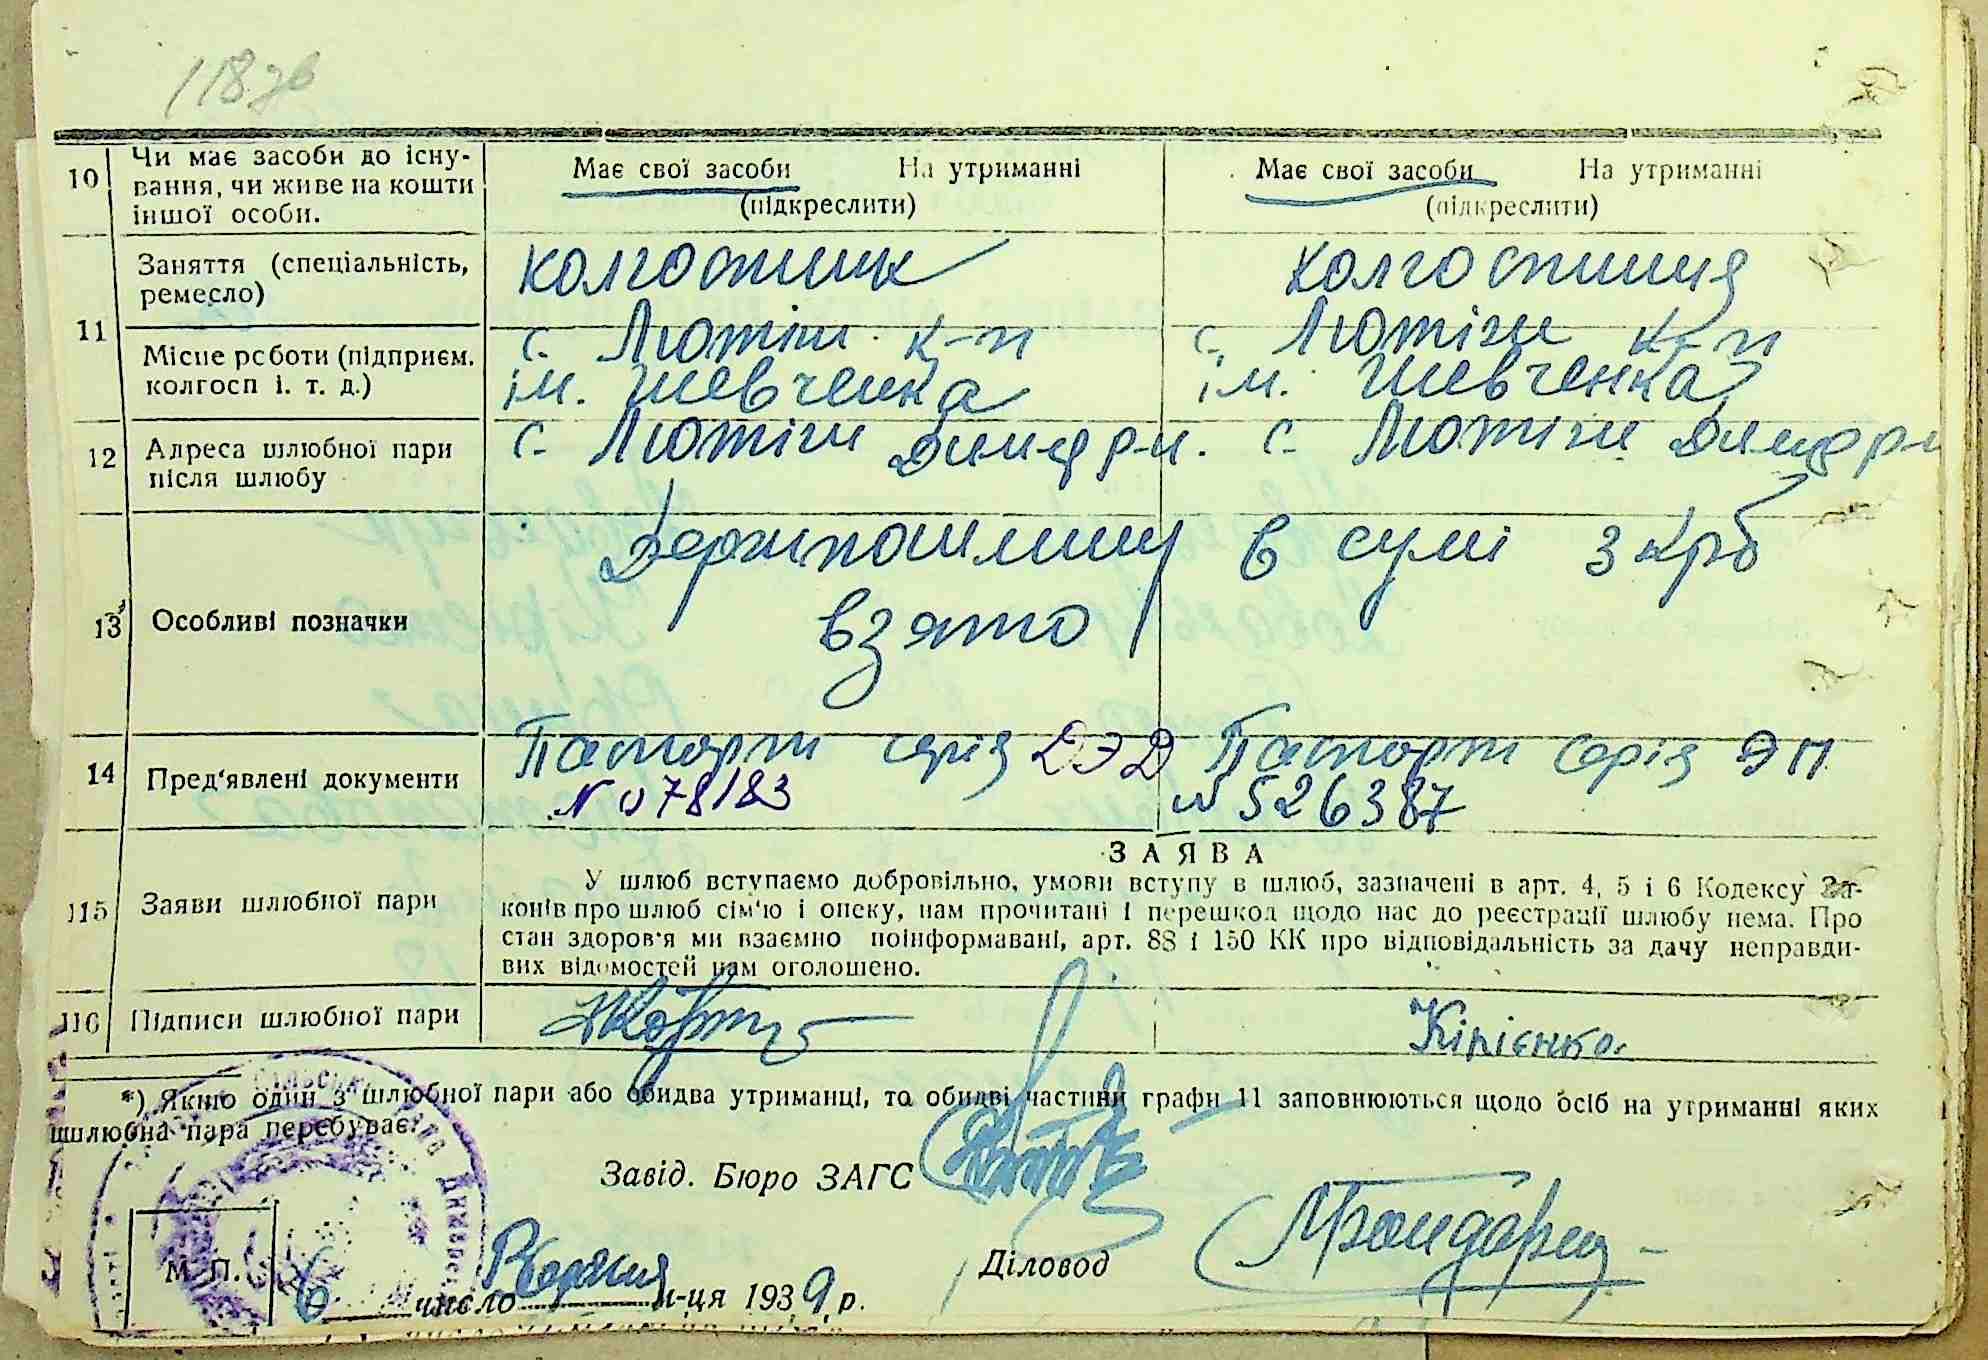 118 зв
10 Чи має засоби до існу-
вання, чи живе на кошти
іншої особи.
Має свої засоби На утриманні
(підкреслити)
Має свої засоби На утриманні
(підкреслити)
11 Заняття (спеціальність,
ремесло)
колгоспник
колгоспниця
Місце роботи (підприєм.
колгосп і. т. д.)
с. Лютіж к-п
ім. Шевченка
с. Лютіж к-п
ім. Шевченка
12 Адреса шлюбної пари
після шлюбу
с. Лютіж Димер р-н.
с. Лютіж Димер р-н
13 Особливі позначки
Держпошлину в сумі 3 крб
взято
14 Пред'явлені документи
Паспорт серія ДЭД
N 078183
Паспорт серія ЭП
N 526387
15 Заяви шлюбної пари
ЗАЯВА
У шлюб вступаємо добровільно, умови вступу в шлюб, зазначені в арт. 4, 5 і 6 Кодексу За-
конів про шлюб сім'ю і опеку, нам прочитані і перешкод щодо нас до реєстрації шлюбу нема. Про
стан здоров'я ми взаємно поінформавані, арт. 88 і 150 КК про відповідальність за дачу неправди-
вих відомостей нам оголошено.
16 Підписи шлюбної пари
Кірієнко
*) Якщо один з шлюбної пари або обидва утриманці, то обидві частини графи 11 заповнюються щодо осіб на утриманні яких
шлюбна пара перебуває.
Завід. Бюро ЗАГС
Діловод
М. П.
6 число Вересня м-ця 1939 р.